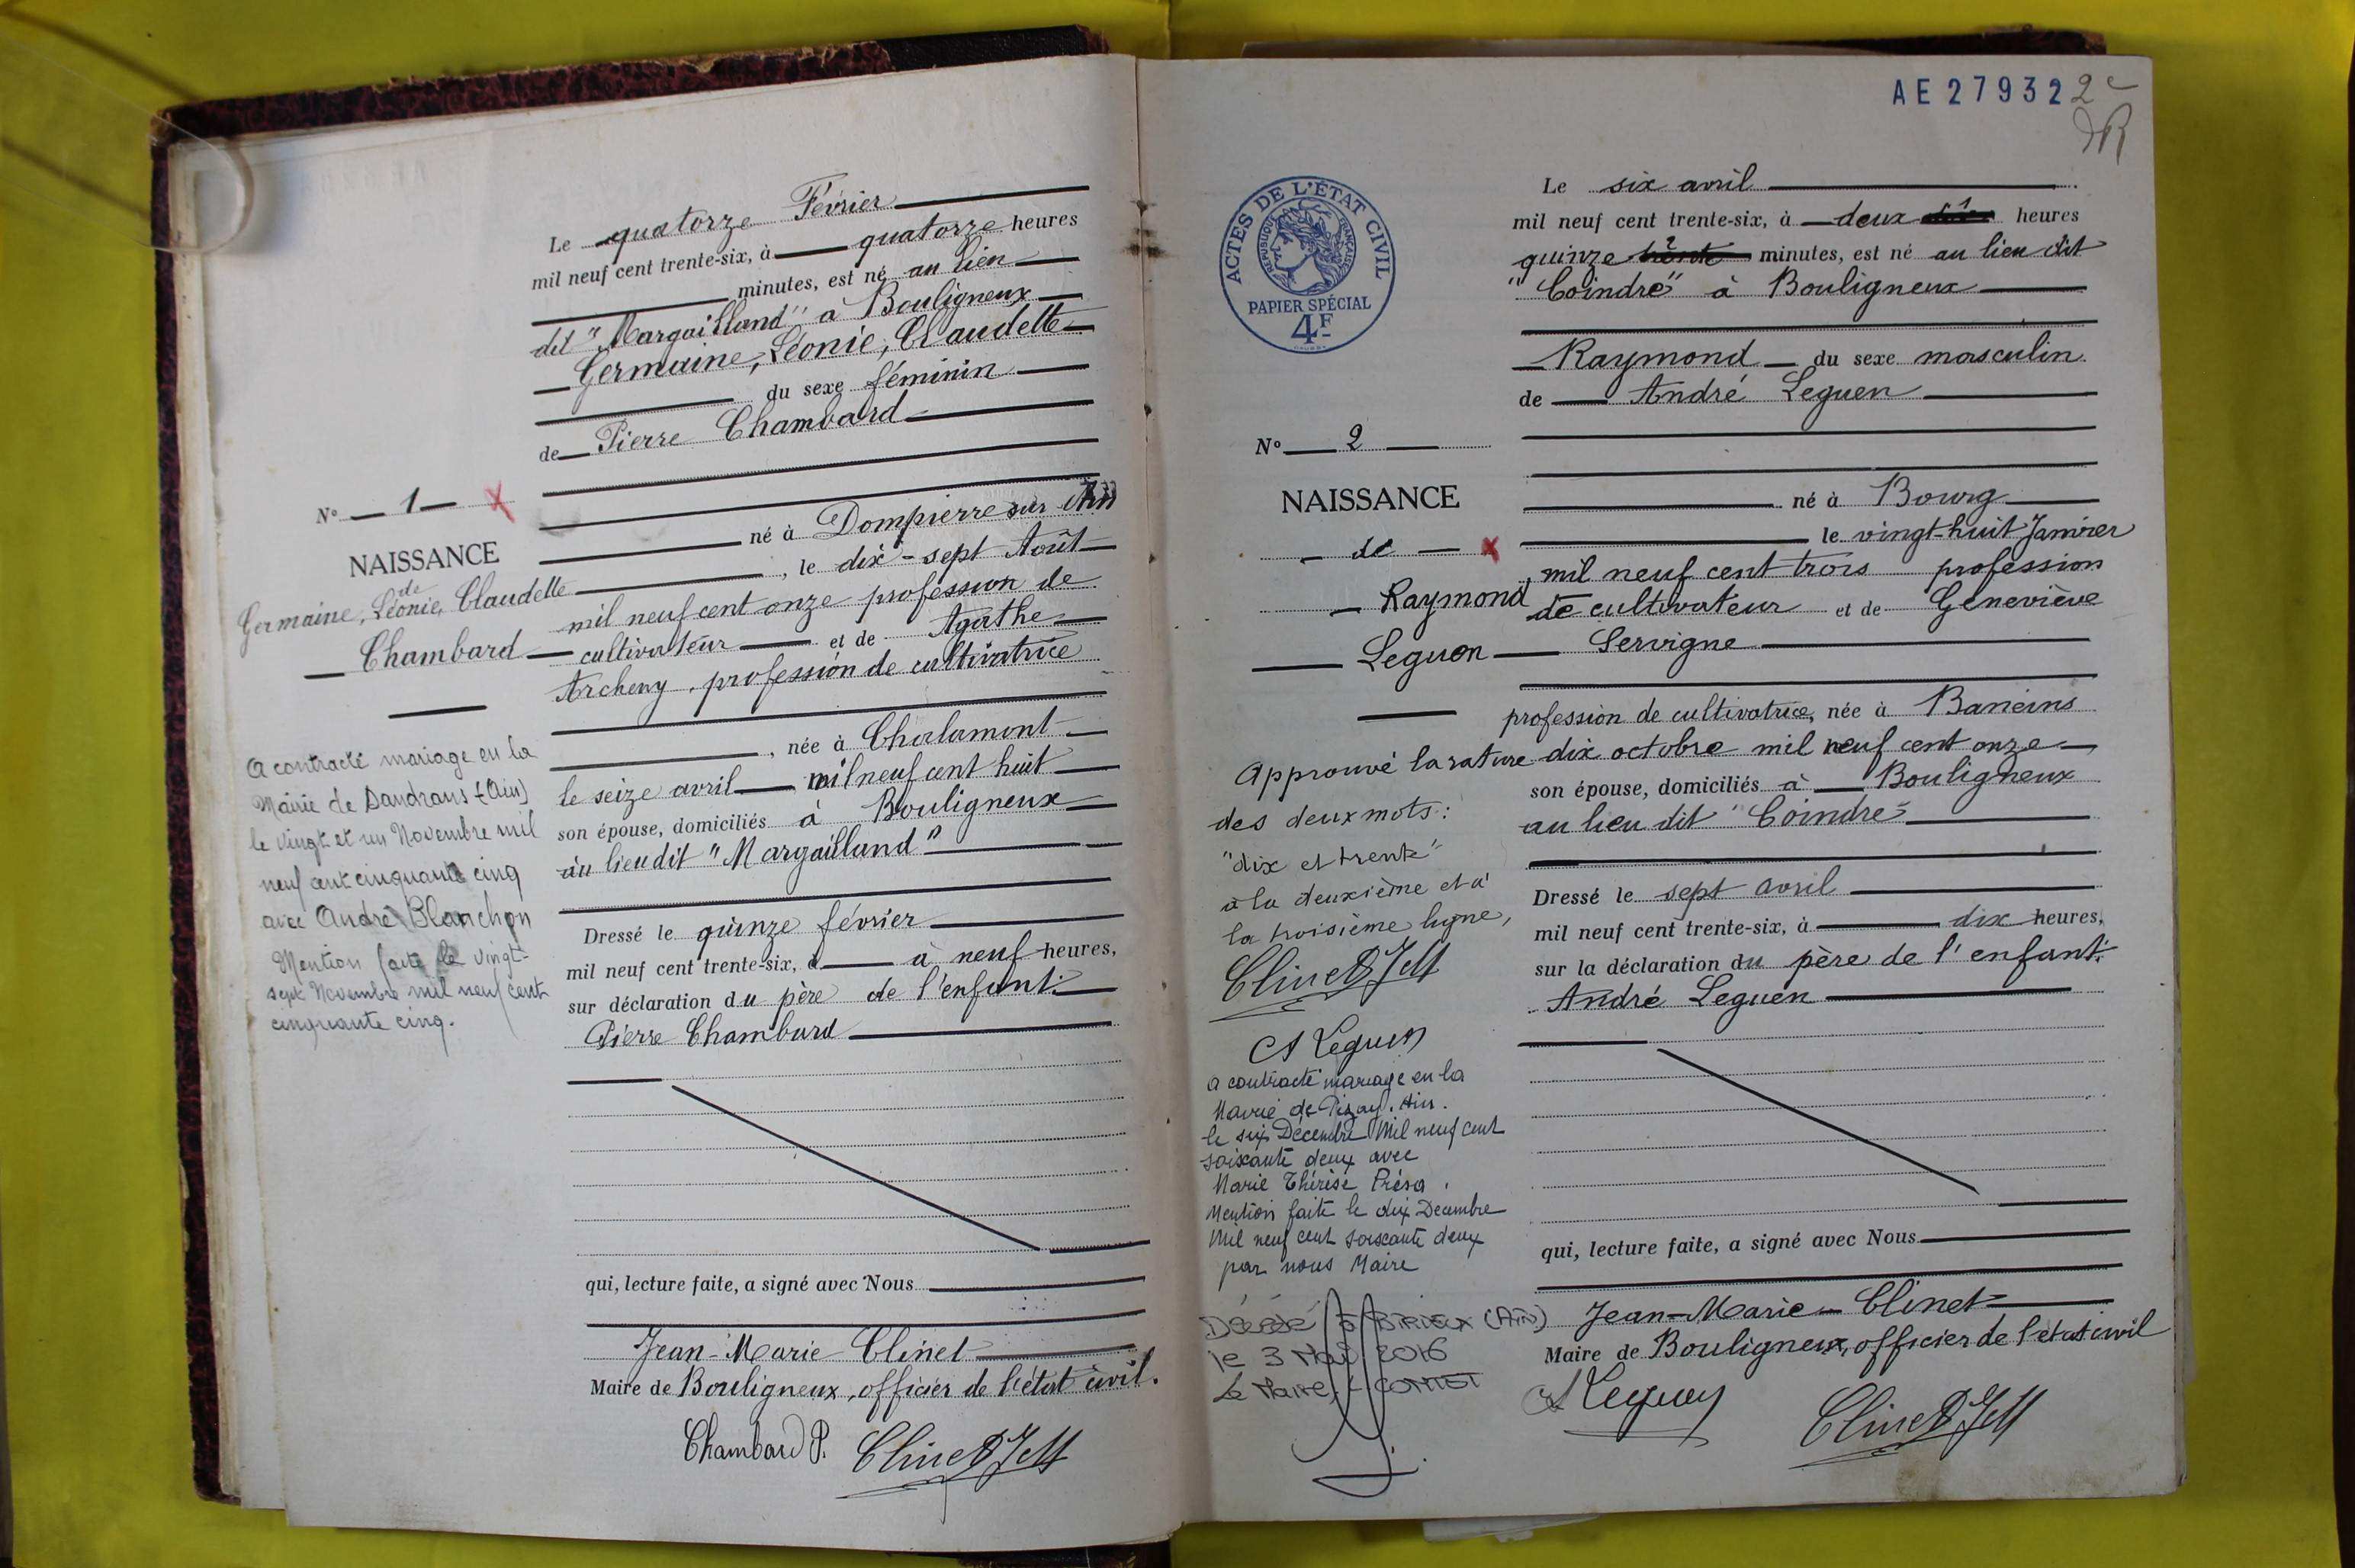 Le quatorze Février
mil neuf cent trente-six, à quatorze heures
minutes, est né au lieu
dit "Margailland" à Bouligneux
Germaine, Léonie, Claudette
du sexe féminin
de Pierre Chambard
né à Dompierre sur Ain
, le dix-sept Août
mil neuf cent onze profession de
cultivateur et de Agathe
Archeny, profession de cultivatrice
, née à Chalamont
le seize avril mil neuf cent huit
son épouse, domiciliés à Bouligneux
au lieu dit "Margailland"
Dressé le quinze février
mil neuf cent trente-six, à à neuf heures,
sur déclaration du père de l'enfant:
Pierre Chambard
qui, lecture faite, a signé avec Nous
Jean-Marie Clinet
Maire de Bouligneux, officier de l'état civil.
Chambard P. Clinet J M
N° 1
NAISSANCE
de
Germaine, Léonie, Claudette
Chambard
A contracté mariage en la
Mairie de Sandrans (Ain)
le vingt et un Novembre mil
neuf cent cinquante cinq
avec André Blanchon
Mention faite le vingt-
sept Novembre mil neuf cent
cinquante cinq.
AE27932 2
ACTES DE L'ÉTAT CIVIL
RÉPUBLIQUE FRANÇAISE
PAPIER SPÉCIAL
4F
Le six avril
mil neuf cent trente-six, à deux dix heures
quinze trente minutes, est né au lieu dit
"Coindre" à Bouligneux
Raymond du sexe masculin
de André Leguen
né à Bourg
le vingt-huit Janvier
mil neuf cent trois profession
de cultivateur et de Geneviève
Servigne
profession de cultivatrice, née à Baneins
dix octobre mil neuf cent onze
son épouse, domiciliés à Bouligneux
au lieu dit "Coindre"
Dressé le sept avril
mil neuf cent trente-six, à dix heures,
sur la déclaration du père de l'enfant:
André Leguen
qui, lecture faite, a signé avec Nous
Jean-Marie Clinet
Maire de Bouligneux, officier de l'état civil
A Leguen Clinet J M
N° 2
NAISSANCE
de
Raymond
Leguen
Approuvé la rature
des deux mots:
"dix et trente"
à la deuxième et à
la troisième ligne,
Clinet J M
A Leguen
a contracté mariage en la
Mairie de Pizay. Ain.
le six Décembre Mil neuf cent
soixante deux avec
Marie Thérèse
Mention faite le dix Decembre
Mil neuf cent soixante deux
par nous Maire
Décédé à BIRIEUX (Ain)
le 3 Mai 2016
Le Maire, L COMTET